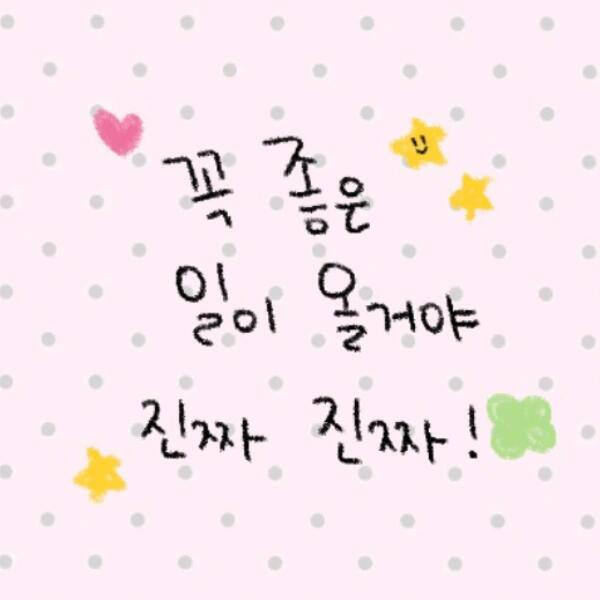 꼭 좋은
일이 올거야
진짜 진짜!